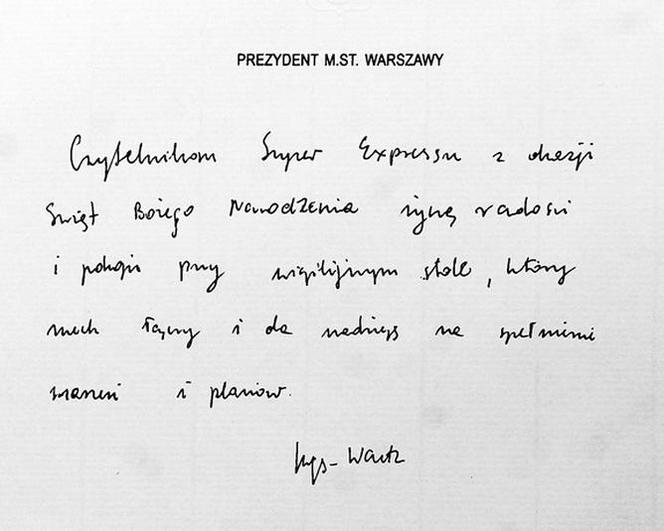 PREZYDENT M.ST. WARSZAWY
Czytelnikom Super Expressu z okazji
Świąt Bożego Narodzenia życzę radości
i pokoju przy wigilijnym stole, który
niech łączy i da nadzieję na spełnienie
marzeń i planów.